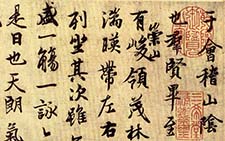 于會稽山陰
也羣賢畢至
崇山
有峻領茂林
湍暎帶左右
列坐其次雖
盛一觴一詠
是日也天朗氣